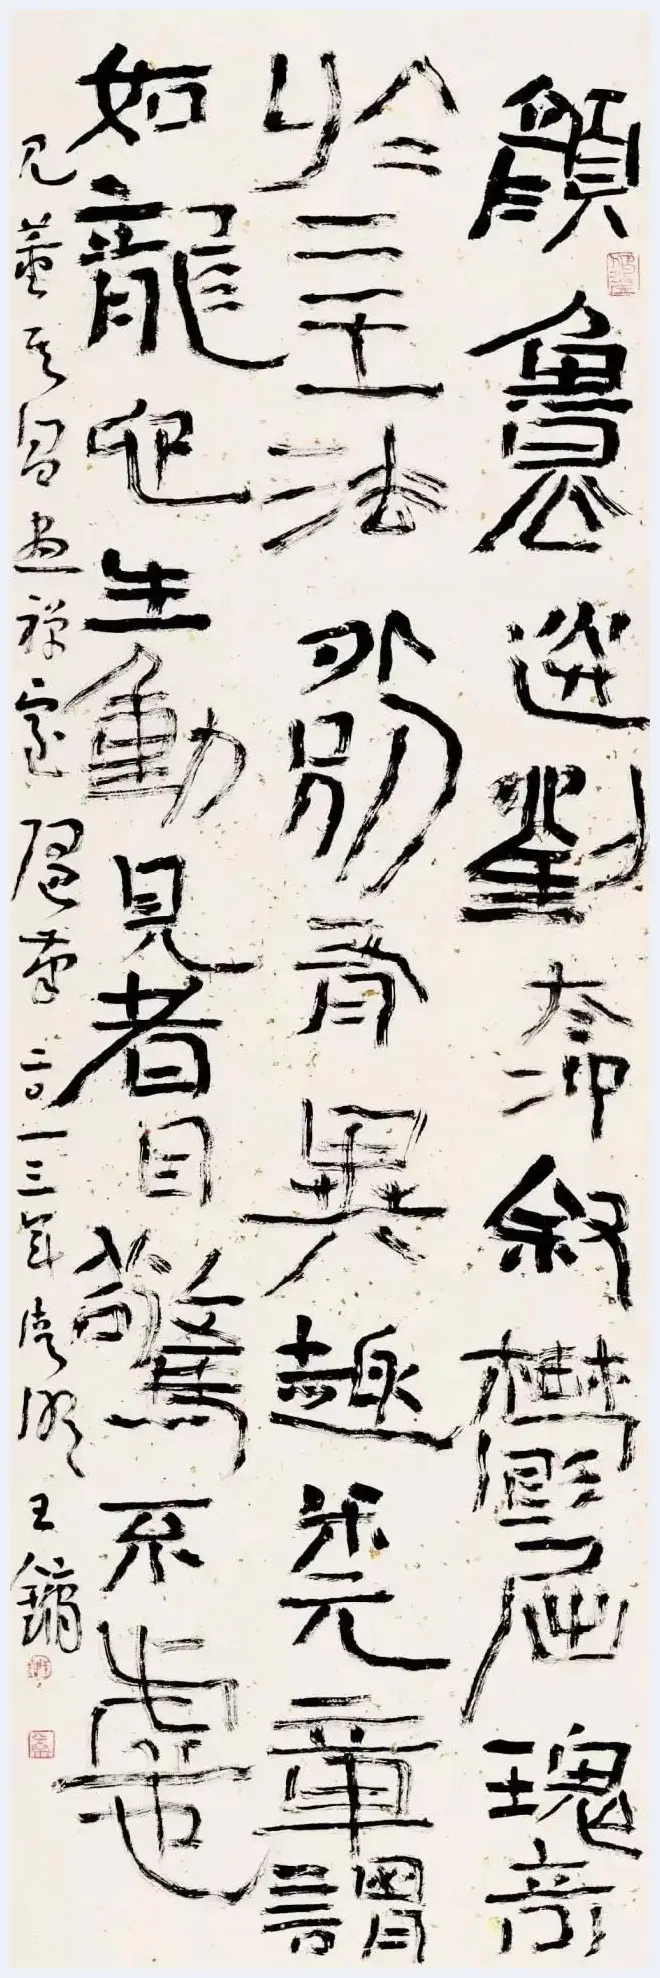 顏魯公送劉太冲敘鬱屈瑰奇
於二王法外別有異趣米元章謂
如龍蛇生動見者目驚不虛也
見董其昌畫禪室隨筆二〇一三年 王鏞